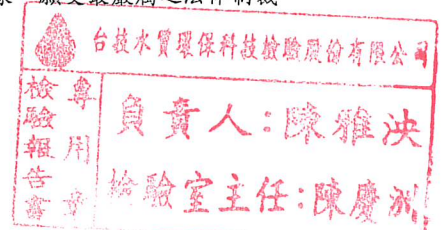 願受最嚴厲之法律制裁
台技水質環保科技檢驗股份有限公司
檢驗報告書
專用章
負責人：陳雅泱
檢驗室主任：陳慶洲